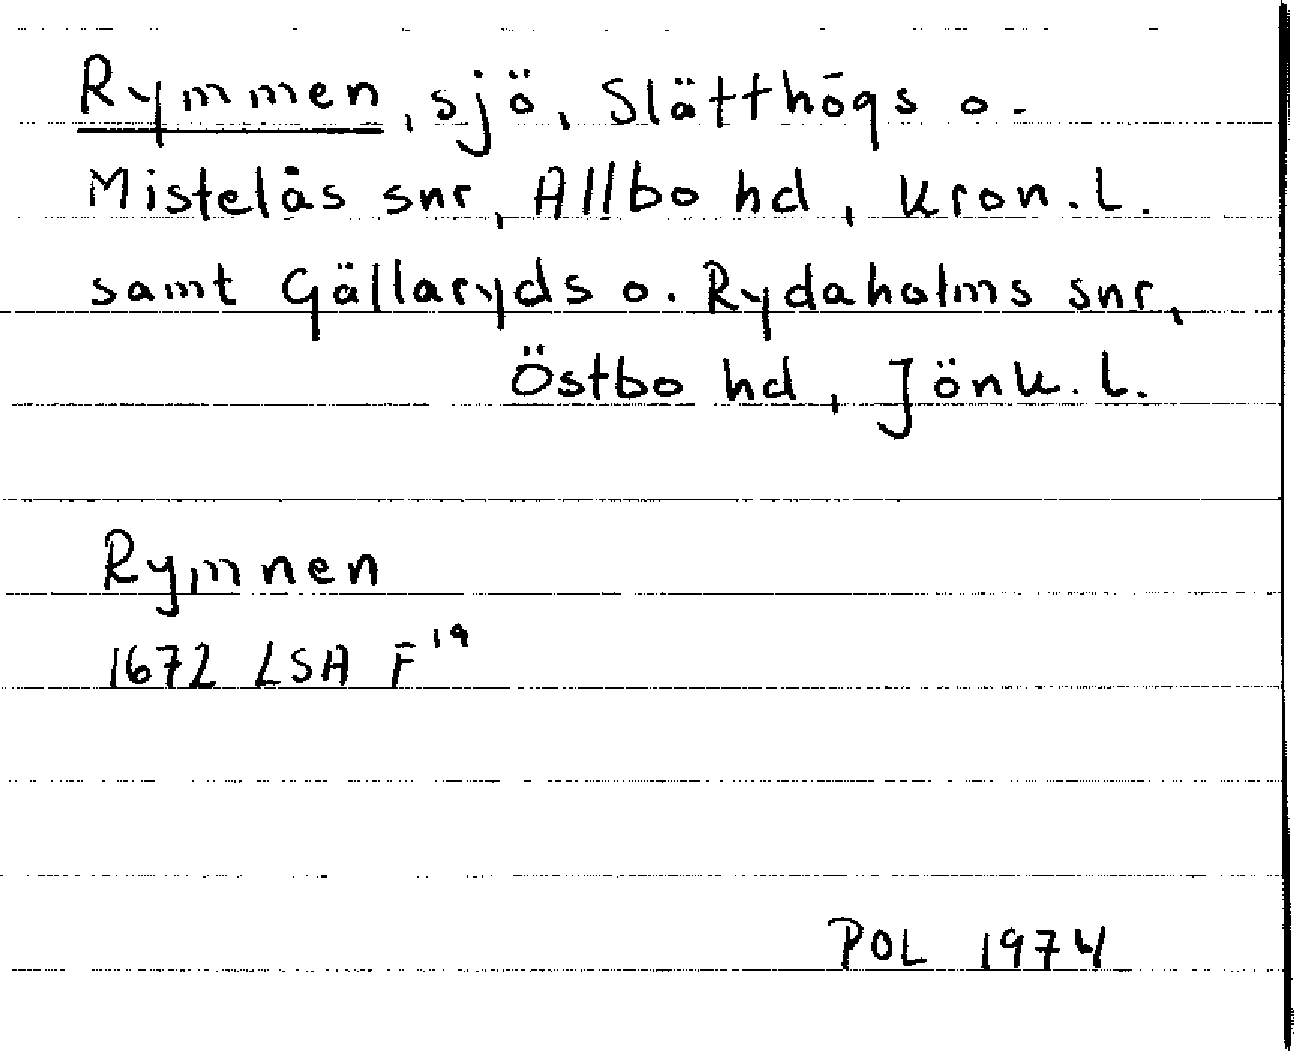 Rymmen, sjö, Slätthögs o.
Mistelås snr, Allbo hd, Kron.l.
samt Gällaryds o. Rydaholms snr,
Östbo hd, Jönk.l.
Rymnen
1672 LSA F19
POL 1974